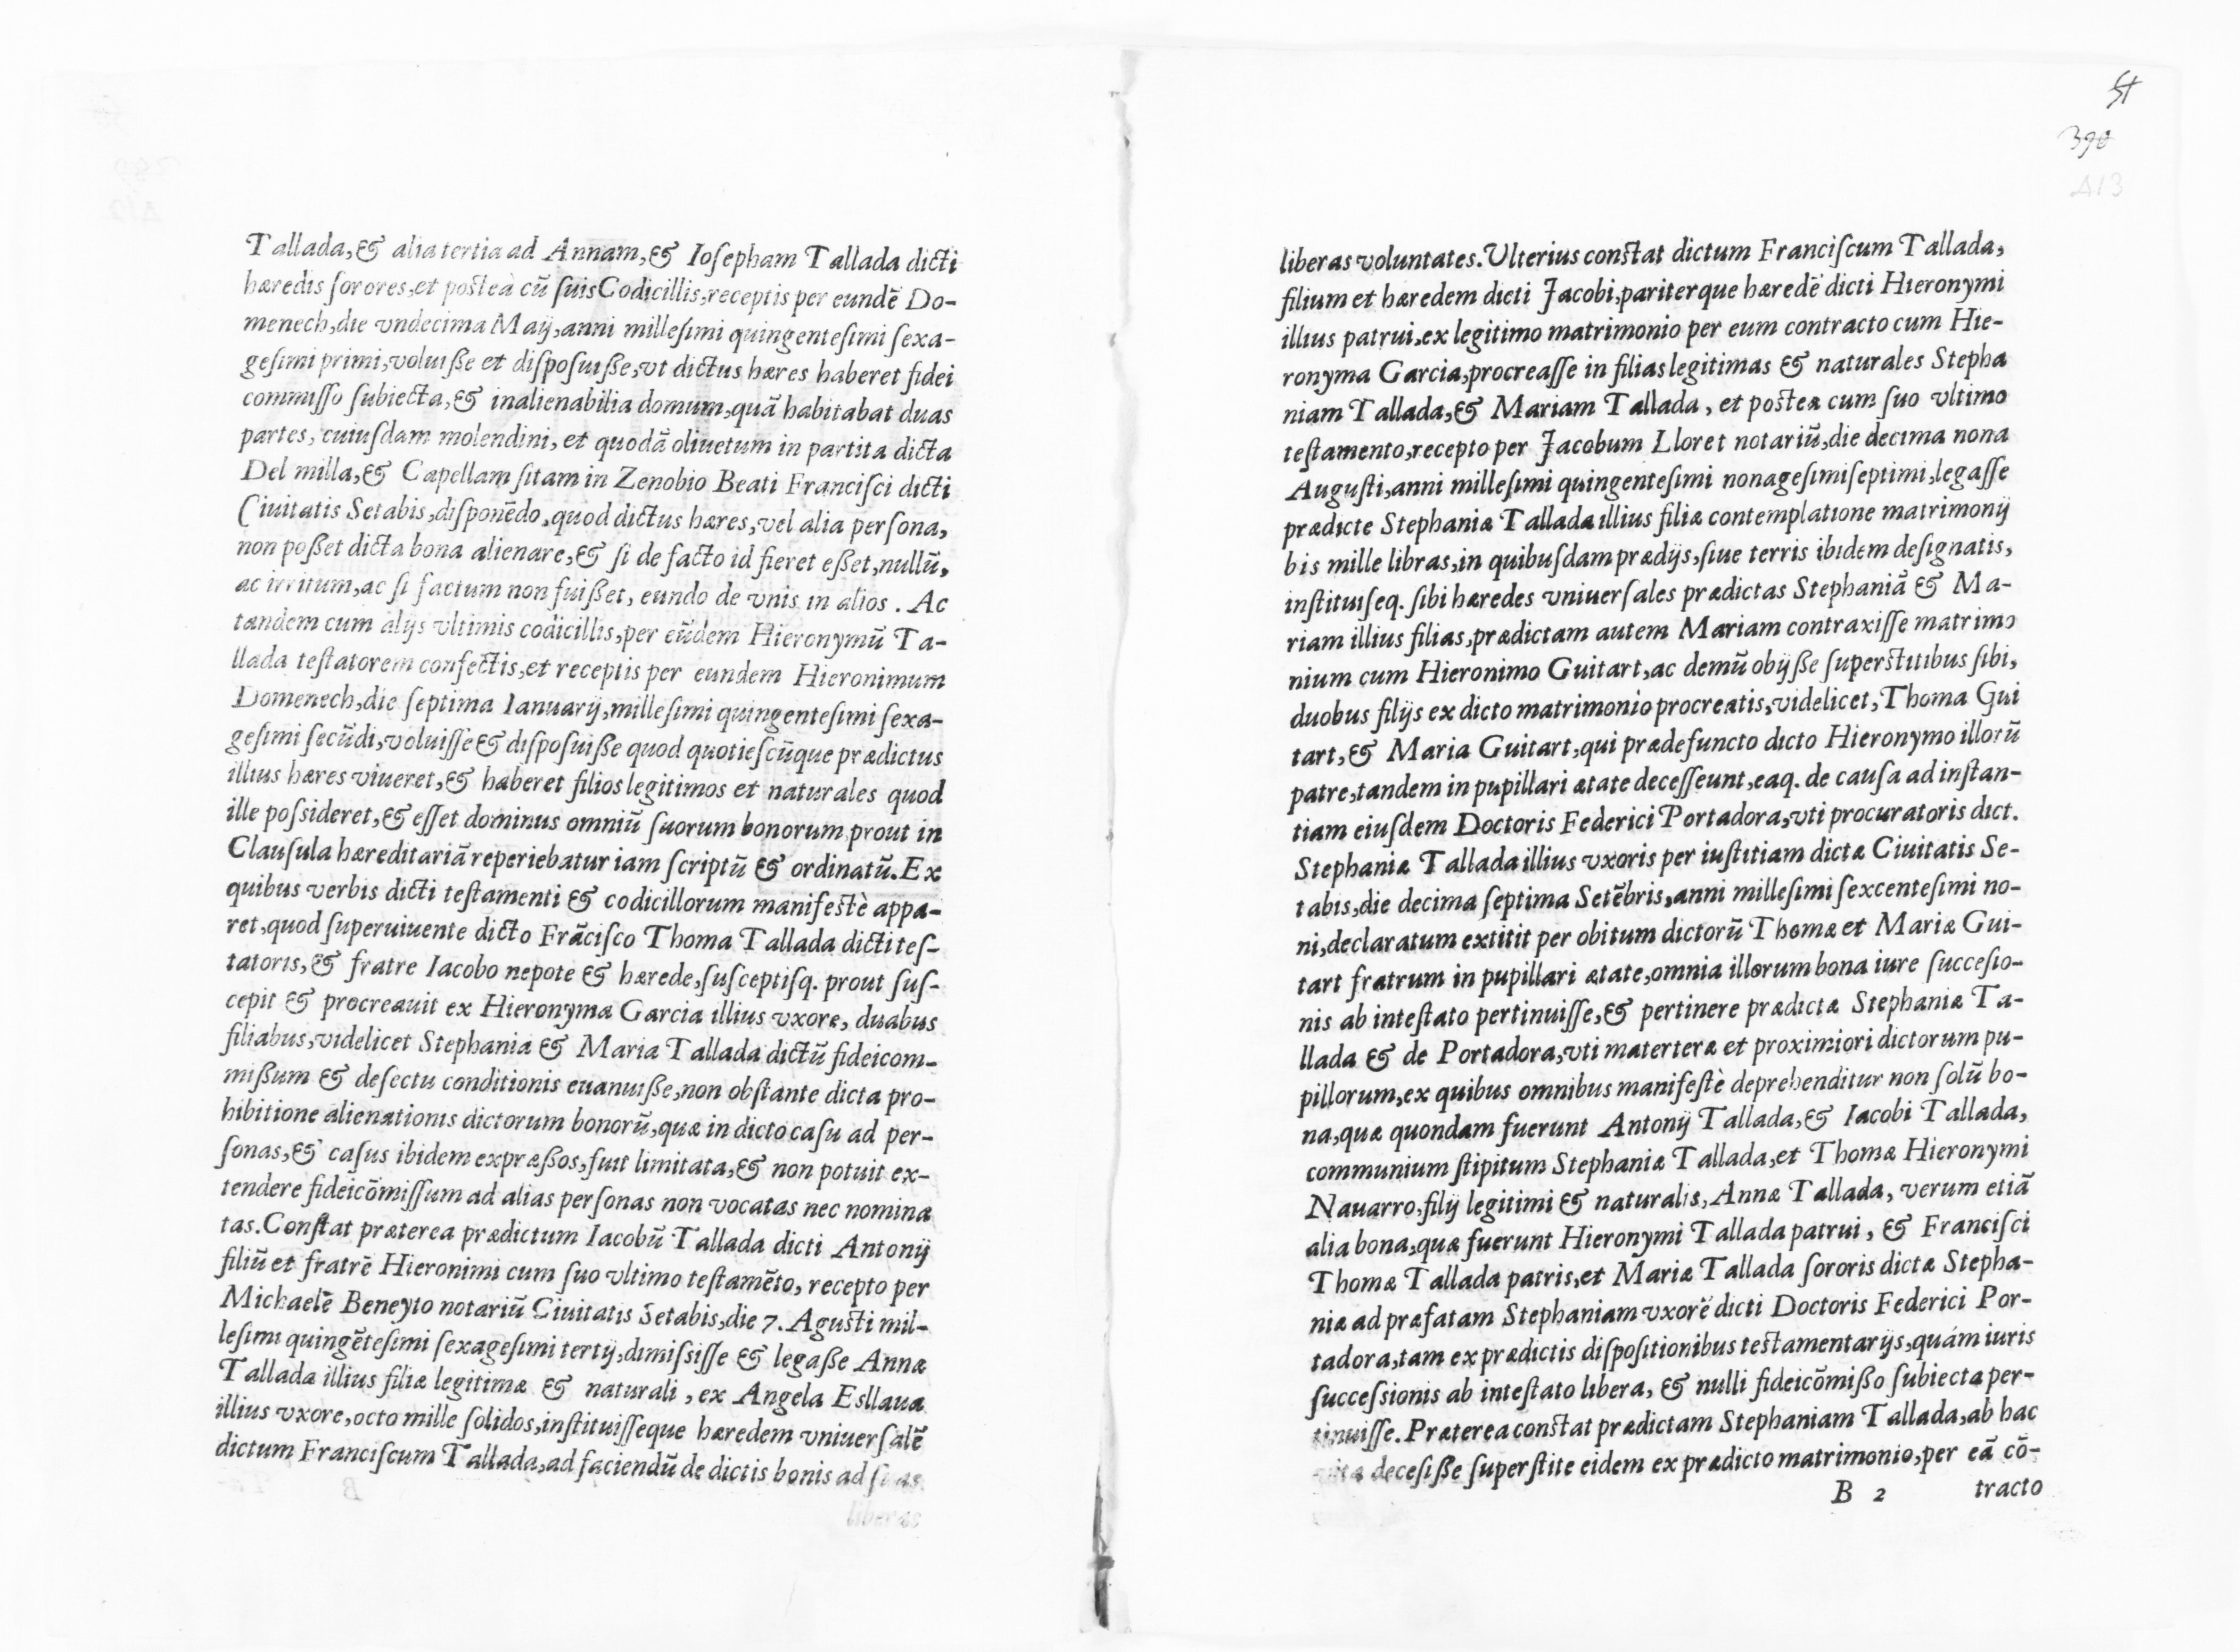 Tallada,& alia tertia ad Annam,& Iosepham Tallada dicti
hæredis sorores,et posteà cũ suis Codicillis,receptis per eundẽ Do-
menech,die vndecima Maij,anni millesimi quingentesimi sexa-
gesimi primi,voluisse et disposuisse,vt dictus hæres haberet fidei
commisso subiecta,& inalienabilia domum,quã habitabat duas
partes, cuiusdam molendini, et quodã oliuetum in partita dicta
Del milla,& Capellam sitam in Zenobio Beati Francisci dicti
Ciuitatis Setabis,disponẽdo,quod dictus hæres,vel alia persona,
non posset dicta bona alienare,& si de facto id fieret esset,nullũ,
ac irritum,ac si factum non fuisset, eundo de vnis in alios . Ac
tandem cum alijs vltimis codicillis,per eũdem Hieronymũ Ta-
llada testatorem confectis,et receptis per eundem Hieronimum
Domenech,die septima Ianuarij,millesimi quingentesimi sexa-
gesimi secũdi,voluisse & disposuisse quod quotiescũque prædictus
illius hæres viueret,& haberet filios legitimos et naturales quod
ille possideret,& esset dominus omniũ suorum bonorum prout in
Clausula hæreditariã reperiebatur iam scriptũ & ordinatũ.Ex
quibus verbis dicti testamenti & codicillorum manifestè appa-
ret,quod superuiuente dicto Frãcisco Thoma Tallada dicti tes-
tatoris,& fratre Iacobo nepote & hærede,susceptisq. prout sus-
cepit & procreauit ex Hieronyma Garcia illius vxore, duabus
filiabus,videlicet Stephania & Maria Tallada dictũ fideicom-
missum & defectu conditionis euanuisse,non obstante dicta pro-
hibitione alienationis dictorum bonorũ,quæ in dicto casu ad per-
sonas,& casus ibidem expræssos,fuit limitata,& non potuit ex-
tendere fideicõmissum ad alias personas non vocatas nec nomina
tas.Constat præterea prædictum Iacobũ Tallada dicti Antonij
filiũ et fratrẽ Hieronimi cum suo vltimo testamẽto, recepto per
Michaelẽ Beneyto notariũ Ciuitatis Setabis,die 7. Agusti mil-
lesimi quingẽtesimi sexagesimi tertij,dimisisse & legasse Annæ
Tallada illius filiæ legitimæ & naturali , ex Angela Esllaua
illius vxore,octo mille solidos,instituisseque hæredem vniuersalẽ
dictum Franciscum Tallada,ad faciendũ de dictis bonis ad suas
liberas
390
A13
liberas voluntates.Vlterius constat dictum Franciscum Tallada,
filium et hæredem dicti Jacobi,pariterque hæredẽ dicti Hieronymi
illius patrui,ex legitimo matrimonio per eum contracto cum Hie-
ronyma Garcia,procreasse in filias legitimas & naturales Stepha
niam Tallada,& Mariam Tallada , et postea cum suo vltimo
testamento,recepto per Jacobum Lloret notariũ,die decima nona
Augusti,anni millesimi quingentesimi nonagesimiseptimi,legasse
prædicte Stephaniæ Tallada illius filiæ contemplatione matrimonij
bis mille libras,in quibusdam prædijs,siue terris ibidem designatis,
instituiseq. sibi hæredes vniuersales prædictas Stephaniã & Ma-
riam illius filias,prædictam autem Mariam contraxisse matrimo
nium cum Hieronimo Guitart,ac demũ obijsse superstitibus sibi,
duobus filijs ex dicto matrimonio procreatis,videlicet,Thoma Gui
tart,& Maria Guitart,qui prædefuncto dicto Hieronymo illorũ
patre,tandem in pupillari ætate decesseunt,eaq. de causa ad instan-
tiam eiusdem Doctoris Federici Portadora,vti procuratoris dict.
Stephaniæ Tallada illius vxoris per iustitiam dictæ Ciuitatis Se-
tabis,die decima septima Setẽbris,anni millesimi sexcentesimi no-
ni,declaratum extitit per obitum dictorũ Thomæ et Mariæ Gui-
tart fratrum in pupillari ætate,omnia illorum bona iure successio-
nis ab intestato pertinuisse,& pertinere prædictæ Stephaniæ Ta-
llada & de Portadora,vti materteræ et proximiori dictorum pu-
pillorum,ex quibus omnibus manifestè deprehenditur non solũ bo-
na,quæ quondam fuerunt Antonij Tallada,& Iacobi Tallada,
communium stipitum Stephaniæ Tallada,et Thomæ Hieronymi
Nauarro,filij legitimi & naturalis, Annæ Tallada, verum etiã
alia bona,quæ fuerunt Hieronymi Tallada patrui , & Francisci
Thomæ Tallada patris,et Mariæ Tallada sororis dictæ Stepha-
niæ ad præfatam Stephaniam vxorẽ dicti Doctoris Federici Por-
tadora,tam ex prædictis dispositionibus testamentarijs,quám iuris
successionis ab intestato libera, & nulli fideicõmisso subiecta per-
tinuisse. Præterea constat prædictam Stephaniam Tallada,ab hac
vita decesisse superstite eidem ex prædicto matrimonio,per eã cõ-
B 2 tracto